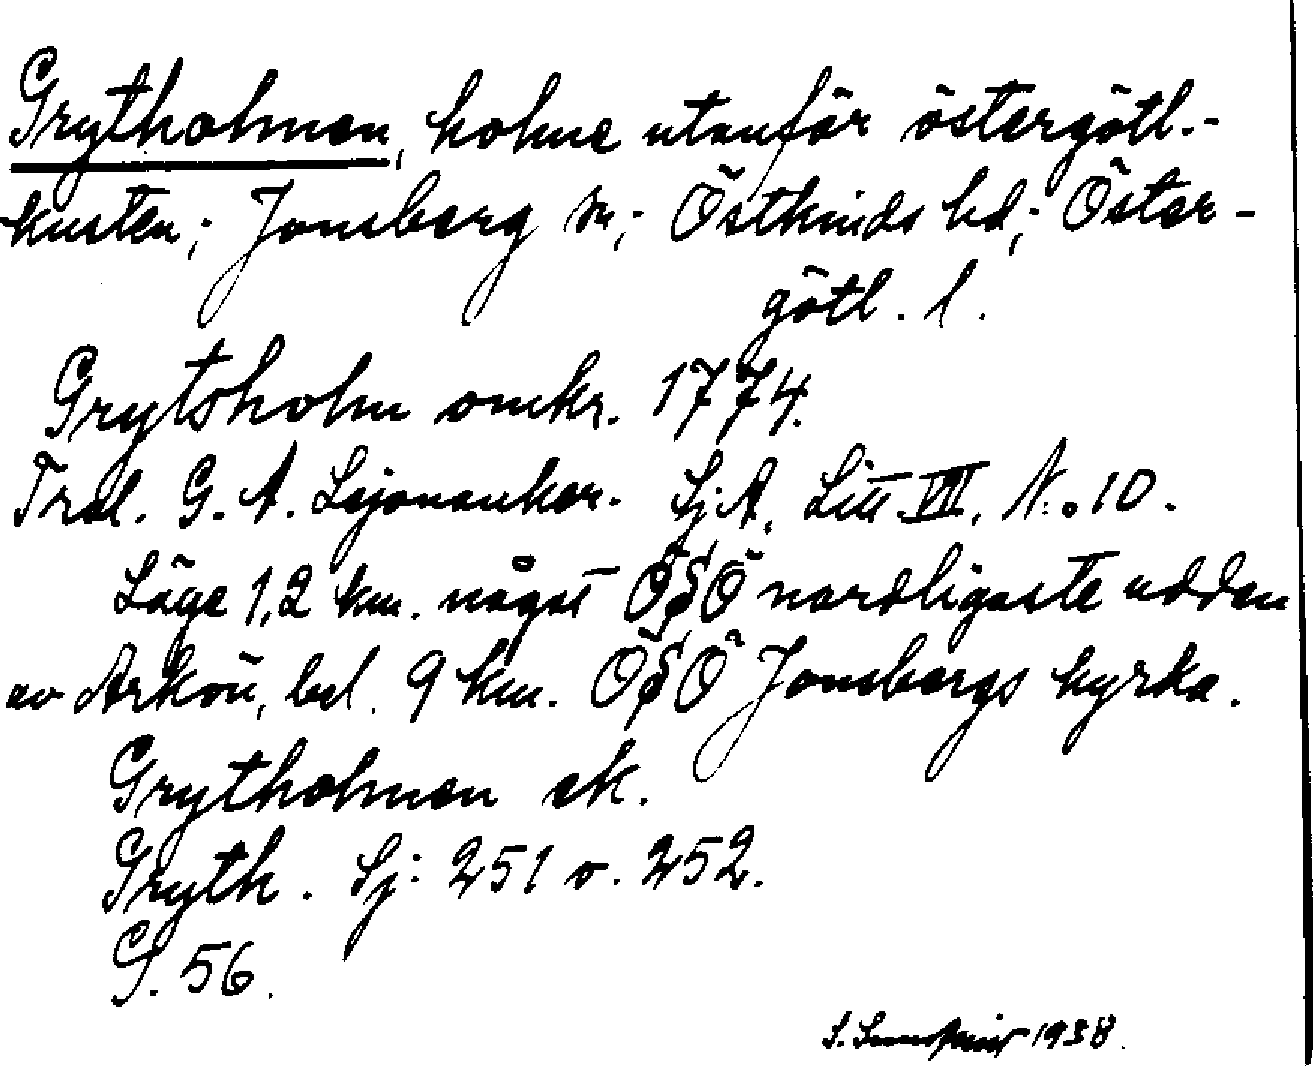 Grytholmen, holme utanför östergötl.-
kusten; Jonsberg sn; Östkinds hd; Öster-
götl. l.
Grytsholm omkr. 1774.
Trol. G. A. Lejonanker. Sj.A. Litt. VII, N:o 10.
Läge 1,2 km. något OSO nordligaste udden
av Arkön, bel. 9 km. OSO Jonsbergs kyrka.
Grytholmen ek.
Gryth. Sj: 251 o. 252.
G. 56.
1938.